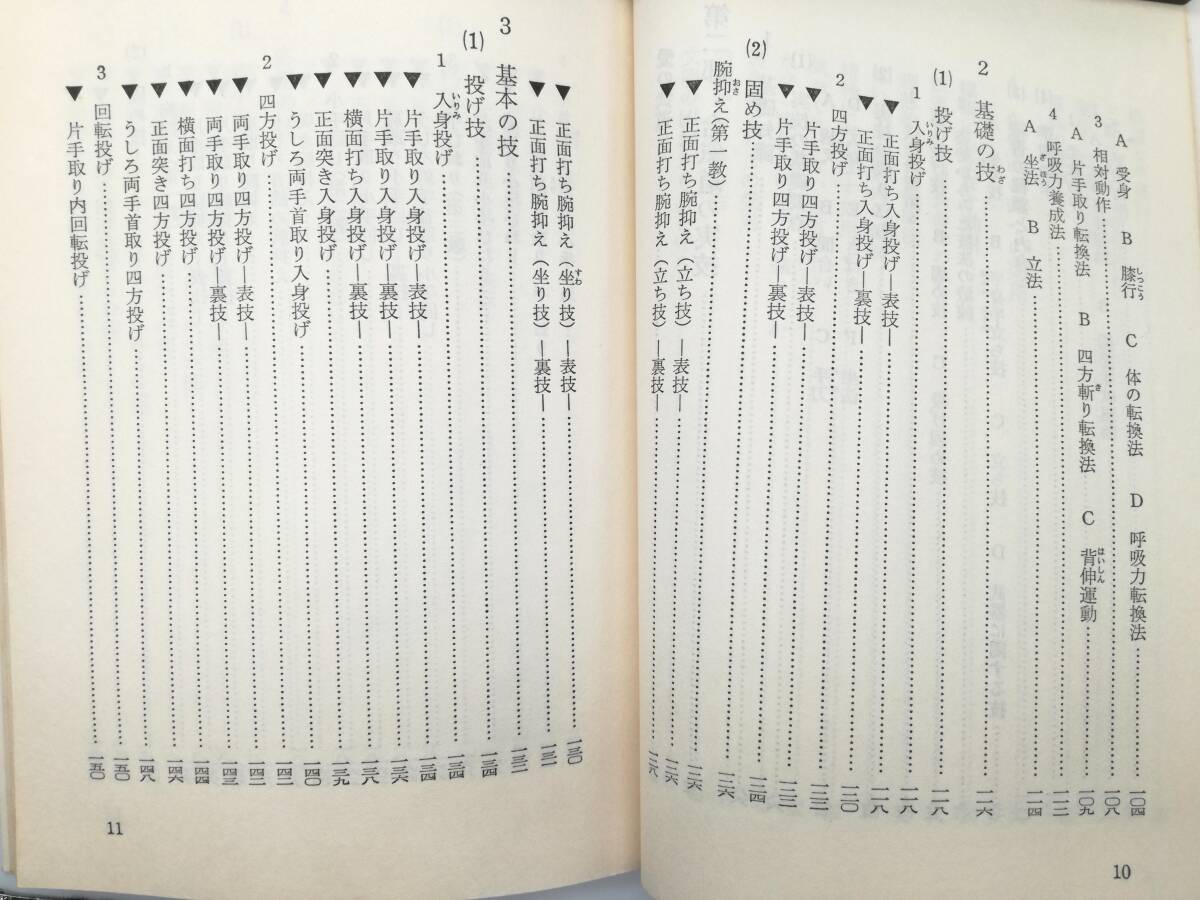 A 受身 B 膝行 C 体の転換法 D 呼吸力転換法……一〇四
3 相対動作……一〇八
A 片手取り転換法 B 四方斬り転換法 C 背伸運動……一〇九
4 呼吸力養成法……一一二
A 坐法 B 立法……一一四
2 基礎の技……一一六
(1) 投げ技……一一八
1 入身投げ……一一八
▼正面打ち入身投げ—表技—……一一八
▼正面打ち入身投げ—裏技—……一二〇
2 四方投げ……一二二
▼片手取り四方投げ—表技—……一二二
▼片手取り四方投げ—裏技—……一二四
(2) 固め技……一二六
腕抑え(第一教)……一二六
▼正面打ち腕抑え(立ち技)—表技—……一二六
▼正面打ち腕抑え(立ち技)—裏技—……一二八
10
▼正面打ち腕抑え(坐り技)—表技—……一三〇
▼正面打ち腕抑え(坐り技)—裏技—……一三二
3 基本の技……一三二
(1) 投げ技……一三四
1 入身投げ……一三四
▼片手取り入身投げ—表技—……一三四
▼片手取り入身投げ—裏技—……一三六
▼横面打ち入身投げ—裏技—……一三八
▼正面突き入身投げ……一三九
▼うしろ両手首取り入身投げ……一四〇
2 四方投げ……一四二
▼両手取り四方投げ—表技—……一四二
▼両手取り四方投げ—裏技—……一四三
▼横面打ち四方投げ……一四四
▼正面突き四方投げ……一四六
▼うしろ両手首取り四方投げ……一四八
3 回転投げ……一五〇
▼片手取り内回転投げ……一五〇
11